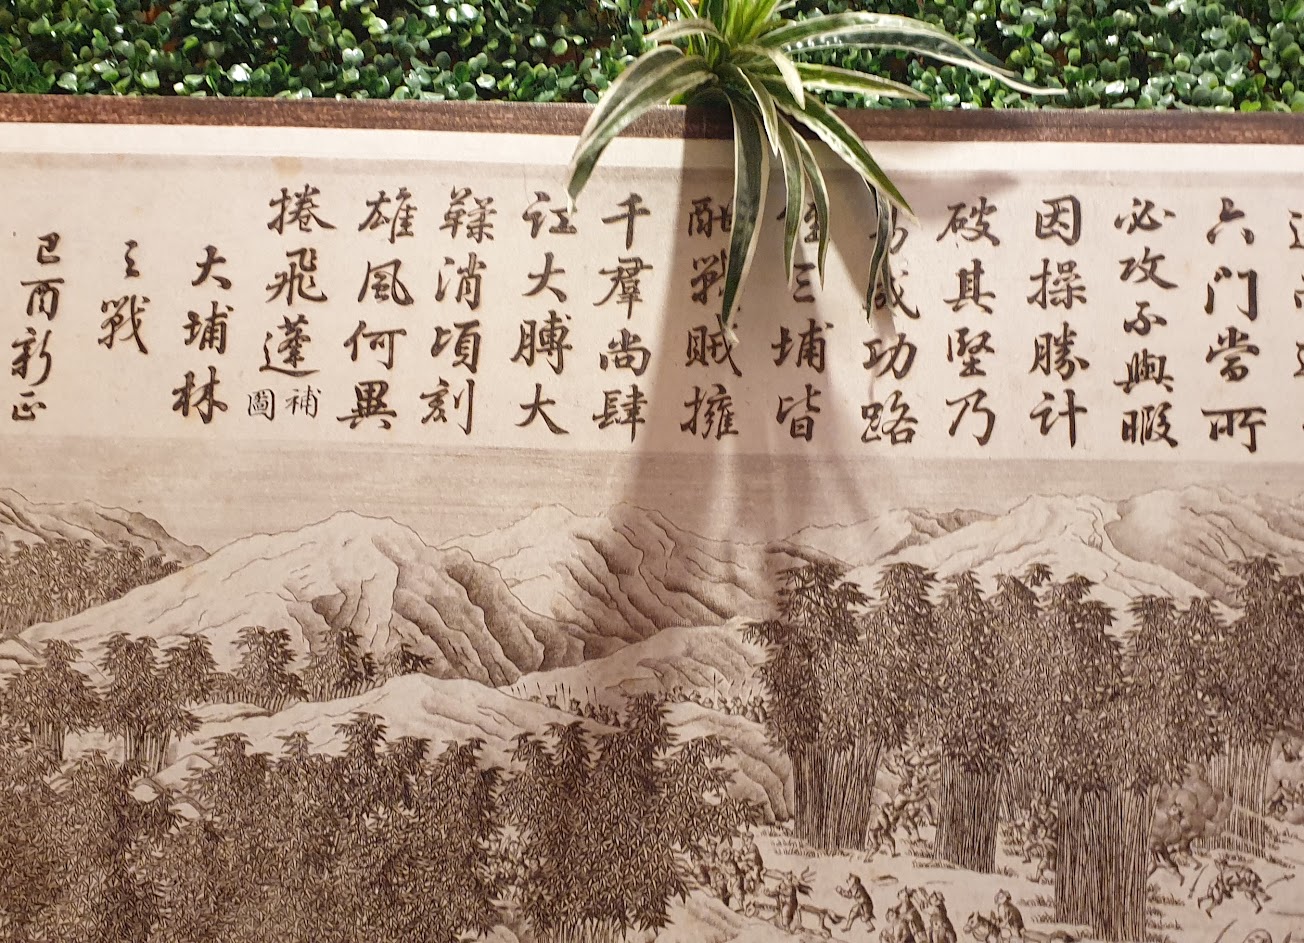 六门當所
必攻不與暇
因操勝計
破其堅乃
成功路
三埔皆
酣戰賊擁
千羣尚肆
訌大膊大
鞣消頃刻
雄風何異
捲飛蓬補圖
大埔林
之戰
己酉新正